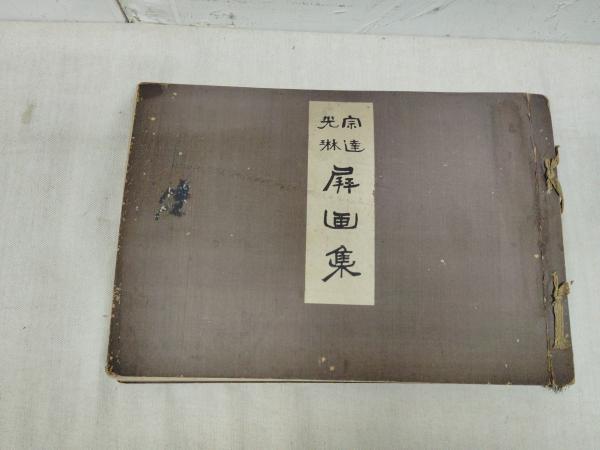 宗達
光琳
屏画集